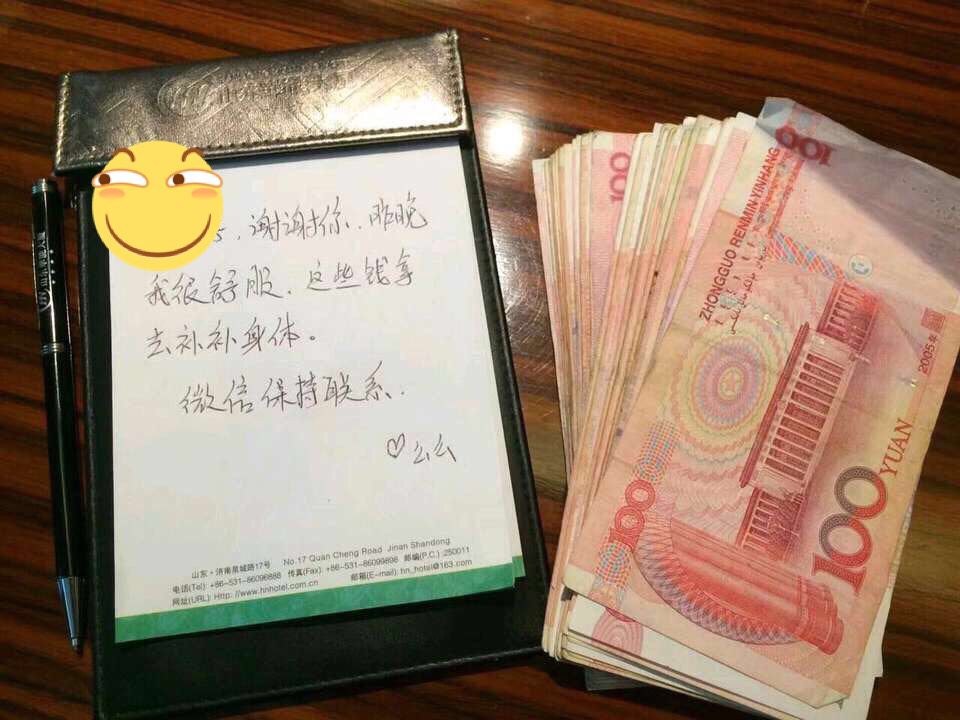 谢谢你，昨晚
我很舒服，这些钱拿
去补补身体。
微信保持联系.
♡么么
山东·济南泉城路17号 No.17 Quan Cheng Road Jinan Shandong
电话(Tel): +86-531-86096888 传真(Fax): +86-531-86099898 邮编(P.C.) :250011
网址(URL): Http: //www.hnhotel.com.cn 邮箱(E-mail): hn_hotel@163.com
100
100
ZHONGGUO RENMIN YINHANG
2005年
100
100 YUAN